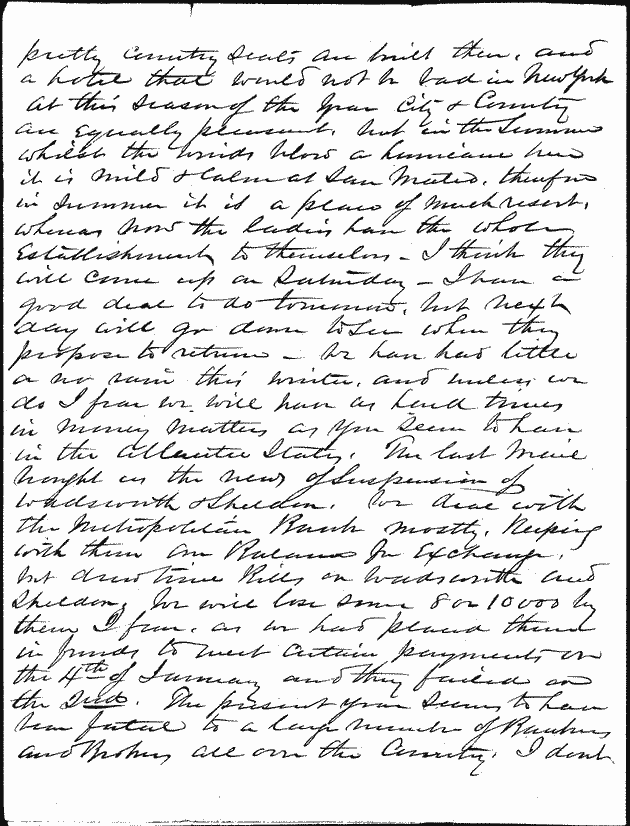 pretty Country Seats are built there, and
a hotel that would not be bad in New York
At this season of the Year City & County
are Equally pleasant. but in the Summer
whilst the winds blow a hurricane here
it is mild & Calm at San Mateo. therefore
in Summer it is a place of much resort.
whereas now the ladies have the whole
Establishment to themselves - I think they
will come up on Saturday - I have a
good deal to do tomorrow, but next
day will go down to see when they
propose to return - We have had little
or no rain this winter, and unless we
do I fear we will have as hard times
in money matters as you seem to have
in the Atlantic States. The last Mail
brought us the news of Suspension of
Wadsworth & Sheldon. We deal with
the Metropolitan Bank mostly, Keeping
with them our Balances for Exchange.
but draw time Bills on Wadsworth and
Sheldon, We will lose some 8 or 10000 by
them I fear, as we had placed them
in funds to meet certain payments on
the 4th of January and they failed on
the 3rd. The present year seems to have
been fatal to a large number of Bankers
and Brokers all over the Country. I dont